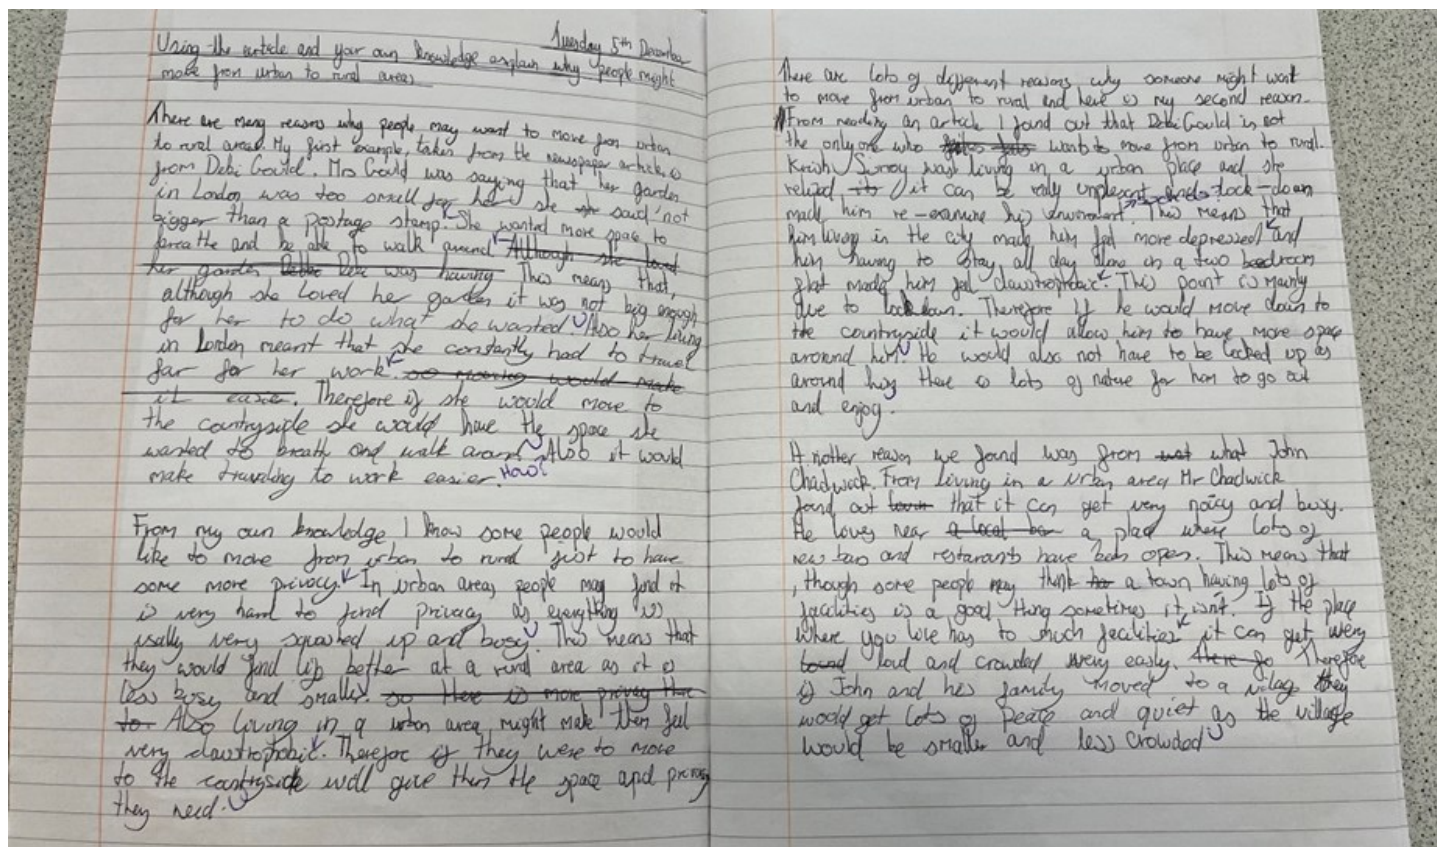 Tuesday 5th December
Using the article and your own knowledge explain why people might
move from urban to rural areas
There are many reasons why people may want to move from urban
to rural areas. My first example, taken from the newspaper article, is
from Debi Gould. Mrs Gould was saying that her garden
in London was too small for her she said 'not
bigger than a postage stamp. She wanted more space to
breathe and be able to walk around Although she loved
her garden Debi was having This means that,
although she loved her garden it was not big enough
for her to do what she wanted Also her living
in London meant that she constantly had to travel
far for her work. so moving would make
it easier. Therefore if she would move to
the countryside she would have the space she
wanted to breath and walk around Also it would
make travelling to work easier. How?
From my own knowledge I know some people would
like to move from urban to rural just to have
some more privacy. In urban areas people may find it
is very hard to find privacy as everything is
usally very squashed up and busy. This means that
they would find life better at a rural area as it is
less busy and smaller. so there is more privacy there
to. Also living in a urban area might make them feel
very claustrophobic. Therefore if they were to move
to the countryside will give them the space and privacy
they need.
There are lots of different reasons why someone might want
to move from urban to rural and here is my second reason.
From reading an article I found out that Debi Gould is not
the only one who wants to move from urban to rural.
was living in a urban place and she
relized it can be realy unplesant lock-down
made him re-examine his enviroment. This means that
him living in the city made him feel more depressed and
him having to stay all day alone in a two bedroom
flat made him feel claustrophobic. This point is mainly
due to lockdown. Therefore if he would move down to
the countryside it would allow him to have more space
around him. He would also not have to be locked up as
around him there is lots of nature for him to go out
and enjoy.
Another reason we found was from what John
Chadwick. From living in a urban area Mr Chadwick
found out that it can get very noisy and busy.
He loves near a local bar a place where lots of
new bars and restarants have been open. This means that
, though some people may think a town having lots of
facilities is a good thing sometimes it isn't. If the place
where you live has to much facilities it can get very
loud and crowded very easily. Therefore
if John and his family moved to a village they
would get lots of peace and quiet as the village
would be smaller and less crowded